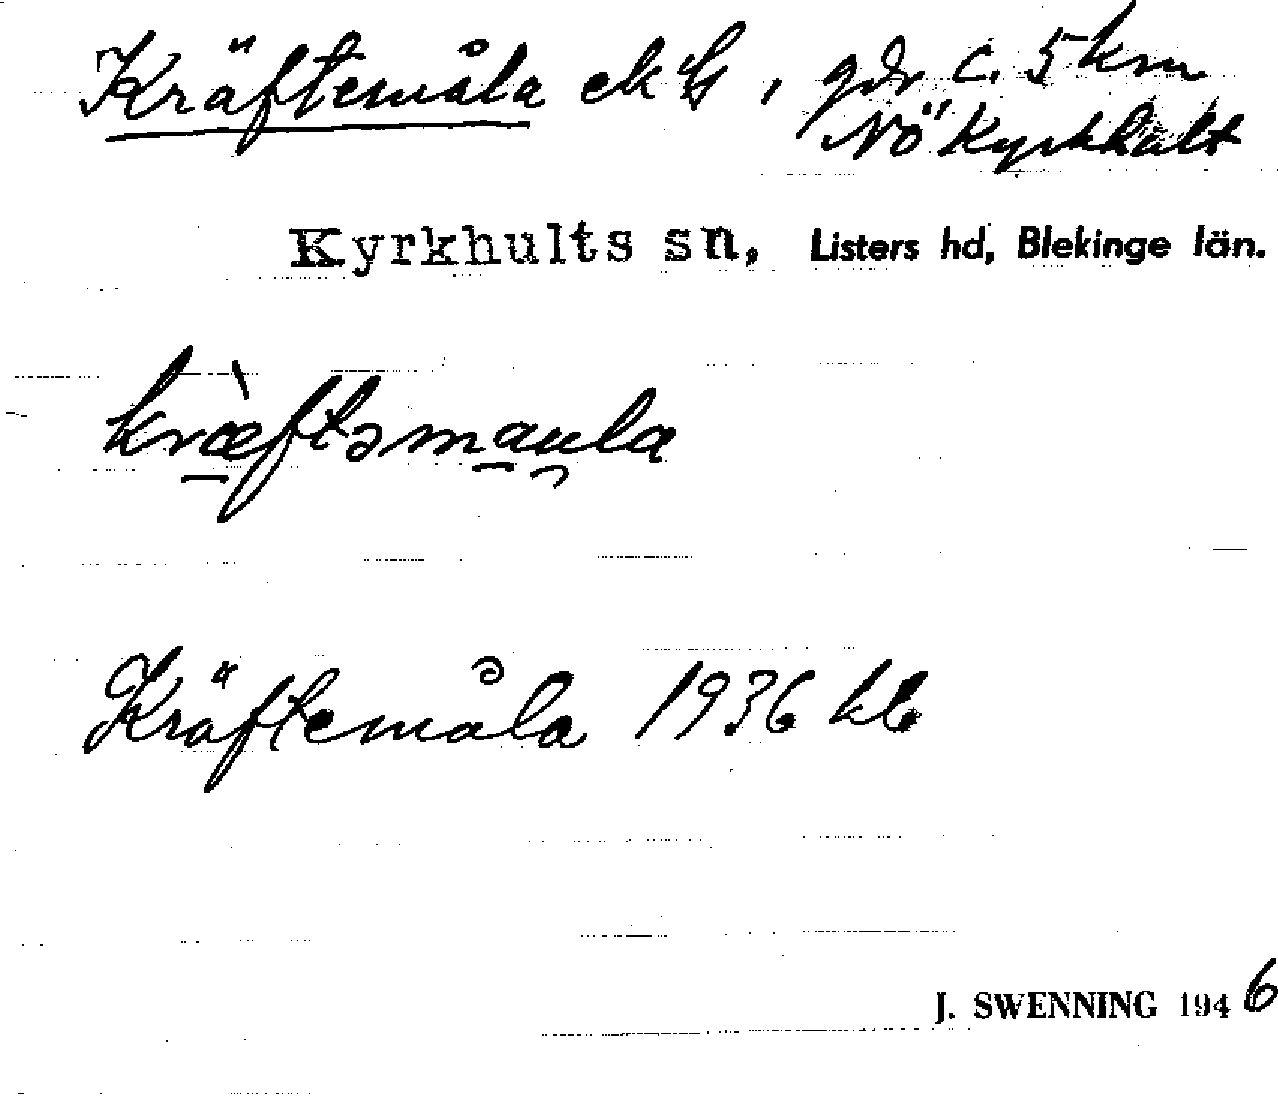 Kräftemåla ek bl, gdr c. 5 km
NÖ Kyrkhult
Kyrkhults sn, Listers hd, Blekinge län.
kræ̀ftəmau̯la
Kräftemåla 1936 kb
J. SWENNING 1946